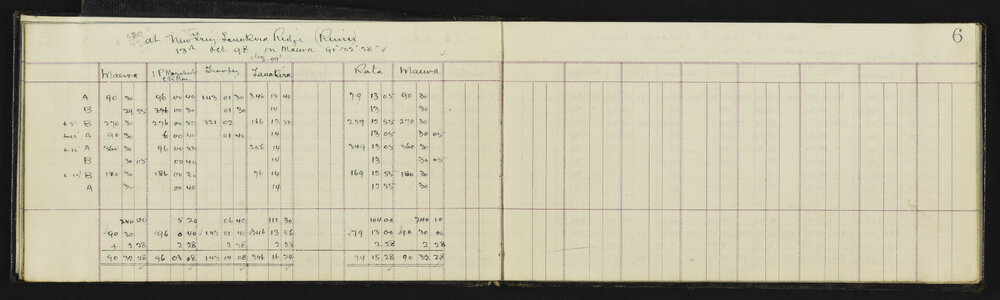 6
at New Trig Tanakira Ridge (Ruin)
13th Oct 98 on Maewa 90° 32' 28"
Maewa Grundy Tanakira Rata Maewa
A 90 30 96 00 40 143 01 30 346 13 40 79 13 05 90 30
B 29 55 276 00 30 01 30 14 13 30
+5' B 270 30 276 00 50 321 02 166 13 50 259 12 55 270 30
+10' A 90 30 6 00 40 01 40 14 13 05 30 05
+10 A 360 30 96 00 50 256 14 349 13 05 360 30
B 30 05 00 40 14 13 30 05
+15' B 180 30 186 00 30 76 14 169 12 55 180 30
A 30 00 40 14 12 55 30
240 00 5 20 06 40 111 30 104 00 240 10
90 30 96 0 40 143 01 40 346 13 56 79 13 00 90 30 00
+ 2 28 2 28 2 28 2 28 2 28 2 28
90 32 28 96 03 08 143 04 08 346 16 24 79 15 28 90 32 28